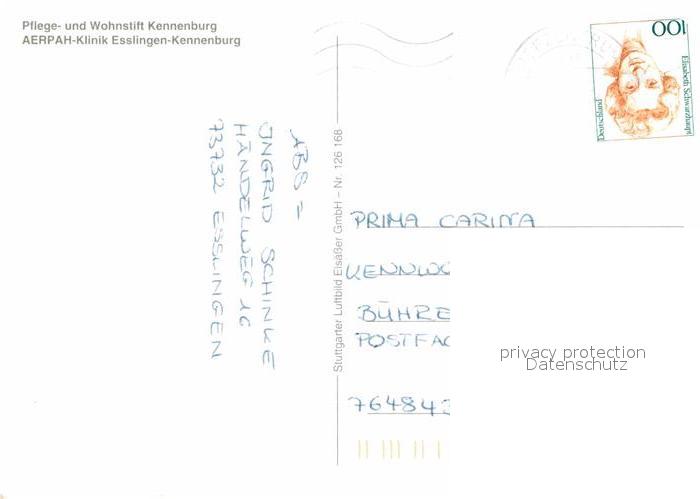 Pflege- und Wohnstift Kennenburg
AERPAH-Klinik Esslingen-Kennenburg
ABS =
INGRID SCHINKE
HÄNDELWEG 10
73732 ESSLINGEN
Stuttgarter Luftbild Elsäßer GmbH – Nr. 126 168
100
Elisabeth Schwarzhaupt
Deutschland
PRIMA CARINA
KENNWO
BÜHRE
POSTFAC
764842
privacy protection
Datenschutz